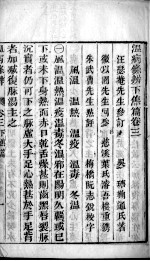 溫病條辨下焦篇卷三
汪瑟菴先生叅訂 吳瑭鞠通氏著
徵以園先生同叅 慈溪葉氏濬吾樓重鐫
朱武曹先生㸃評 栝橋阮志棠校字
風溫 溫熱 溫疫 溫毒 冬溫
㈠風溫溫熱溫疫溫毒冬溫邪在陽明久羈或已
下或未下身熱面赤口乾舌燥甚則齒黑唇裂脈
沉實者仍可下之脈虛大手足心熱甚於手足背
者加減復脈湯主之